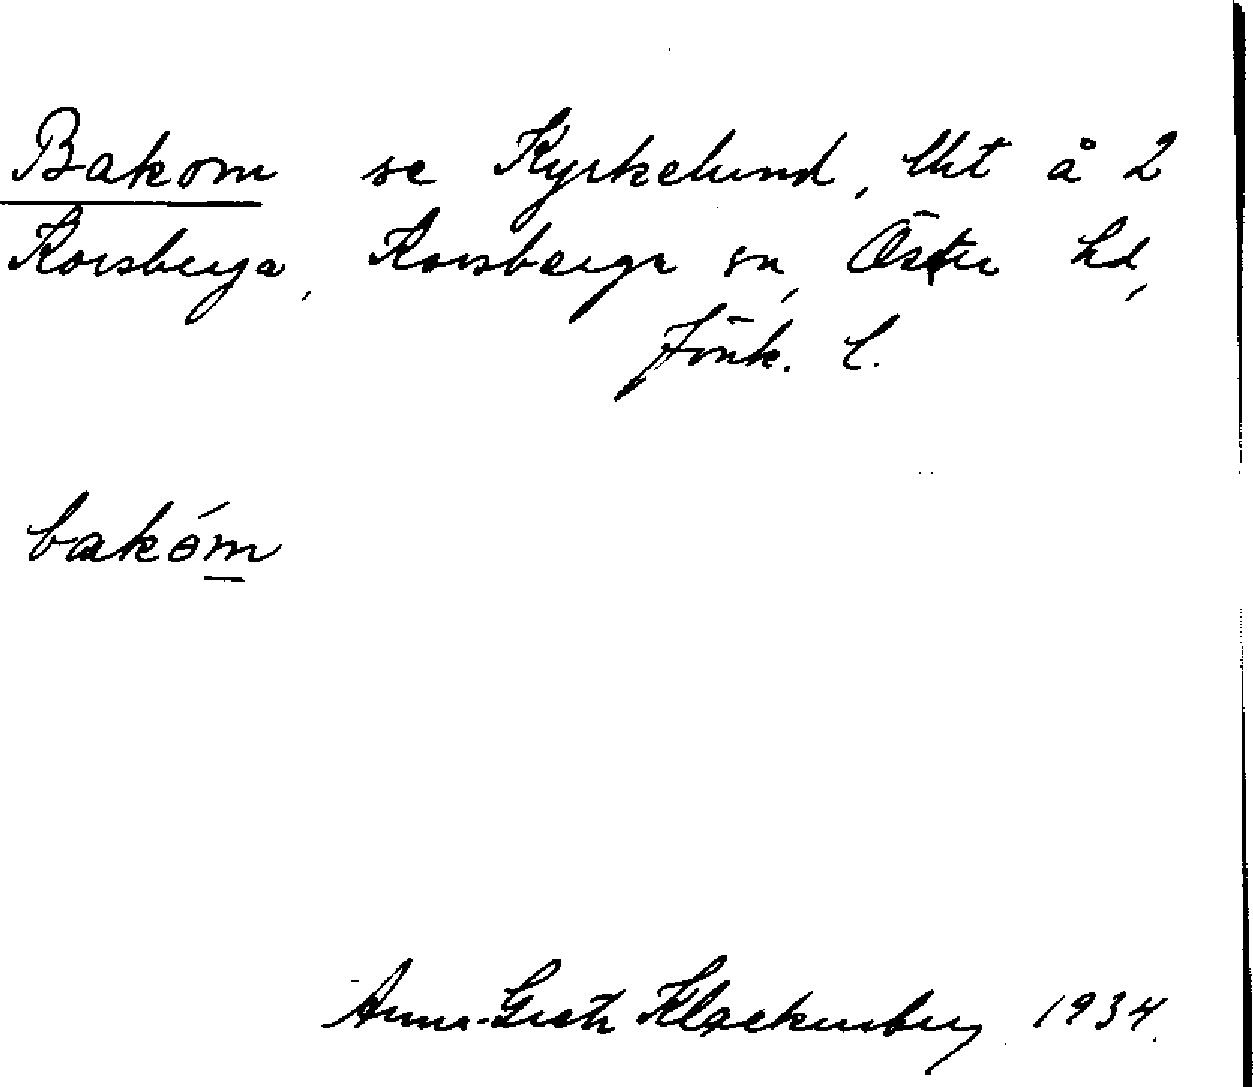 Bakom se Kyrkelund, tht å 2
Korsberga, Korsberga sn, Östra hd,
Jönk. l.
bakóm
Anna-Greth Klackenberg 1934.